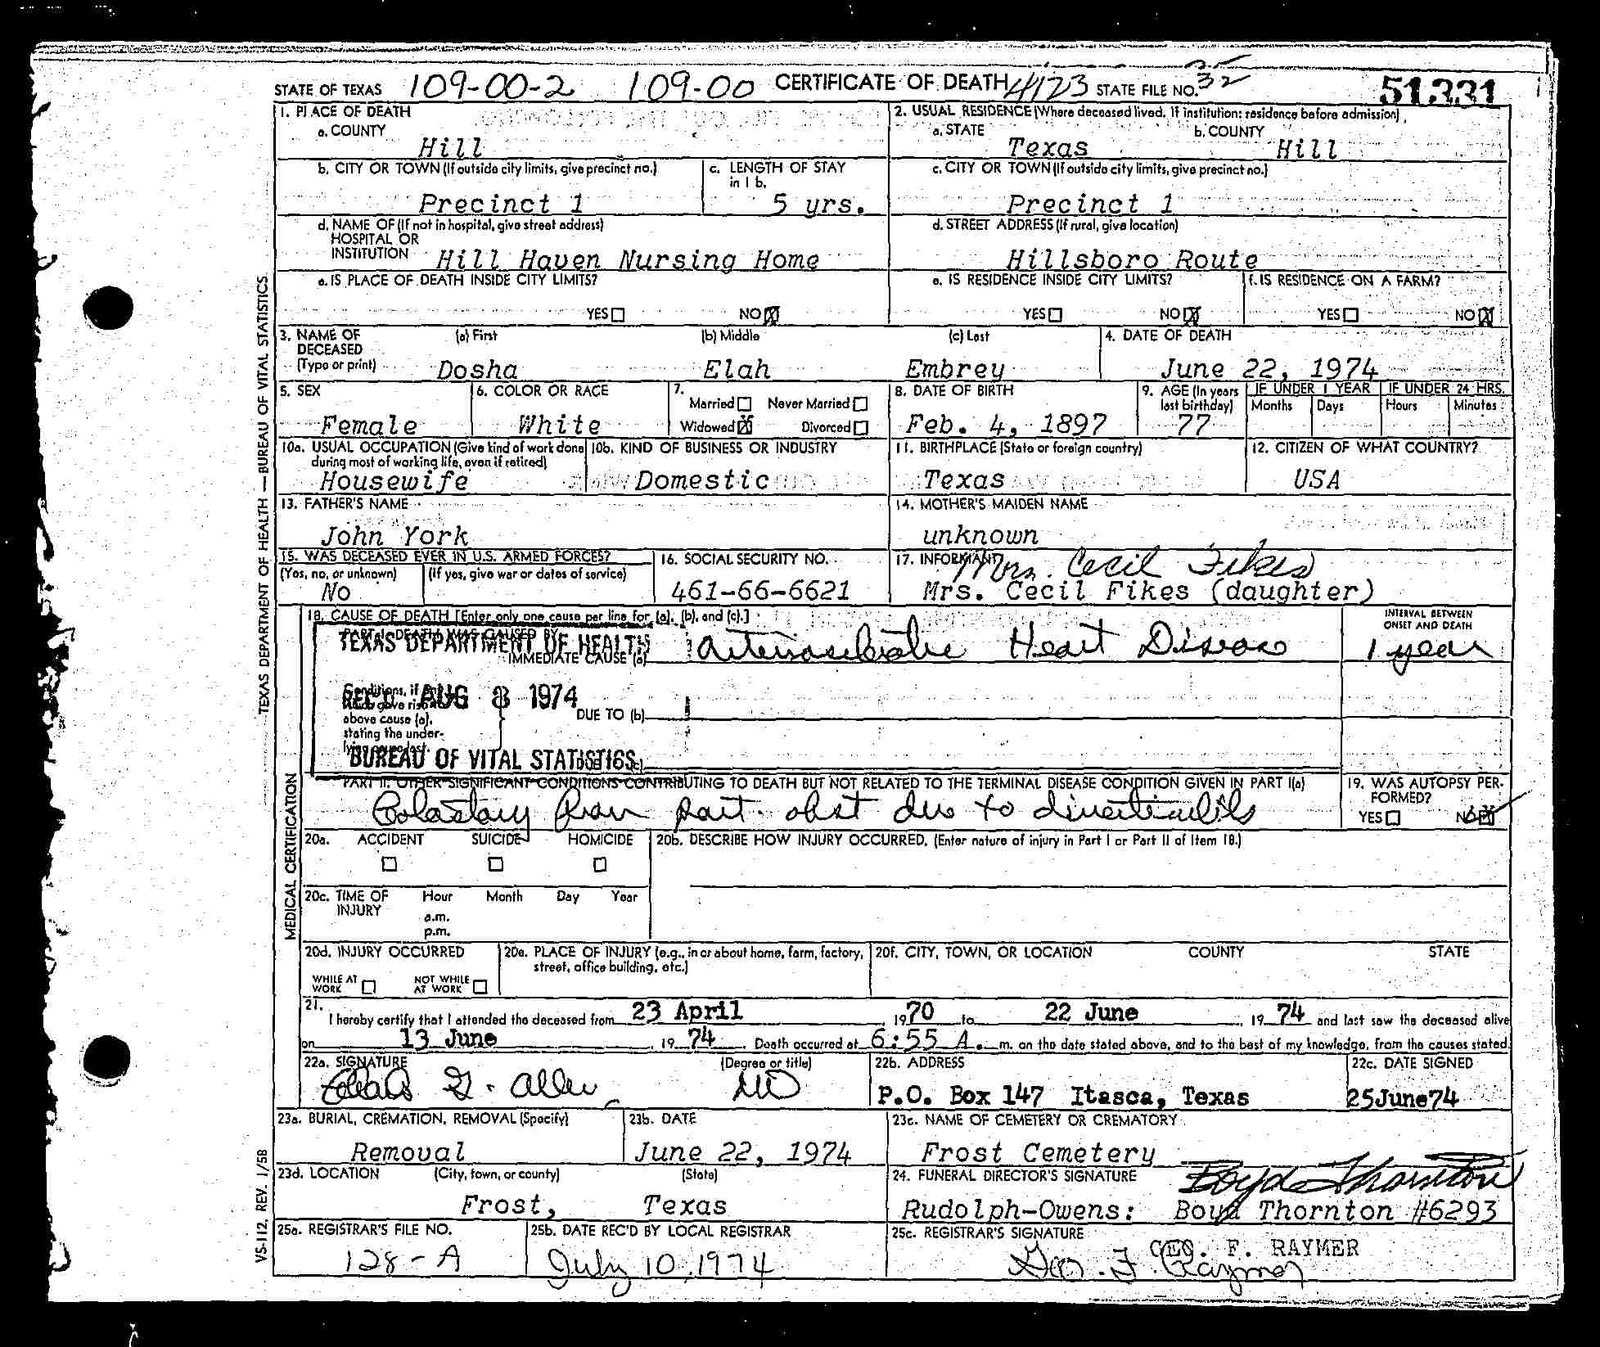 STATE OF TEXAS 109-00-2 109-00 CERTIFICATE OF DEATH 4123 STATE FILE NO. 32 51331
1. PLACE OF DEATH
a. COUNTY
Hill
2. USUAL RESIDENCE (Where deceased lived. If institution: residence before admission)
a. STATE b. COUNTY
Texas Hill
b. CITY OR TOWN (If outside city limits, give precinct no.)
Precinct 1
c. LENGTH OF STAY
in 1 b.
5 yrs.
c. CITY OR TOWN (If outside city limits, give precinct no.)
Precinct 1
d. NAME OF (If not in hospital, give street address)
HOSPITAL OR
INSTITUTION Hill Haven Nursing Home
d. STREET ADDRESS (If rural, give location)
Hillsboro Route
e. IS PLACE OF DEATH INSIDE CITY LIMITS?
YES NO X
e. IS RESIDENCE INSIDE CITY LIMITS?
YES NO X
f. IS RESIDENCE ON A FARM?
YES NO X
3. NAME OF DECEASED (Type or print)
(a) First (b) Middle (c) Last
Dosha Elah Embrey
4. DATE OF DEATH
June 22, 1974
5. SEX
Female
6. COLOR OR RACE
White
7.
Married Never Married
Widowed X Divorced
8. DATE OF BIRTH
Feb. 4, 1897
9. AGE (In years
last birthday)
77
IF UNDER 1 YEAR IF UNDER 24 HRS.
Months Days Hours Minutes
10a. USUAL OCCUPATION (Give kind of work done
during most of working life, even if retired)
Housewife
10b. KIND OF BUSINESS OR INDUSTRY
Domestic
11. BIRTHPLACE (State or foreign country)
Texas
12. CITIZEN OF WHAT COUNTRY?
USA
13. FATHER'S NAME
John York
14. MOTHER'S MAIDEN NAME
unknown
15. WAS DECEASED EVER IN U.S. ARMED FORCES?
(Yes, no, or unknown) (If yes, give war or dates of service)
No
16. SOCIAL SECURITY NO.
461-66-6621
17. INFORMANT Mrs. Cecil Fikes
Mrs. Cecil Fikes (daughter)
18. CAUSE OF DEATH [Enter only one cause per line for (a), (b), and (c).]
INTERVAL BETWEEN
ONSET AND DEATH
PART I. DEATH WAS CAUSED BY:
TEXAS DEPARTMENT OF HEALTH
IMMEDIATE CAUSE (a) Arteriosclerotic Heart Disease 1 year
Conditions, if any,
which gave rise to
above cause (a),
stating the under-
lying cause last.
REC'D AUG 8 1974
DUE TO (b)
BUREAU OF VITAL STATISTICS
PART II. OTHER SIGNIFICANT CONDITIONS CONTRIBUTING TO DEATH BUT NOT RELATED TO THE TERMINAL DISEASE CONDITION GIVEN IN PART I(a)
part. obst due to diverticulitis
19. WAS AUTOPSY PER-
FORMED?
YES NO X
20a. ACCIDENT SUICIDE HOMICIDE
20b. DESCRIBE HOW INJURY OCCURRED. (Enter nature of injury in Part I or Part II of Item 18.)
20c. TIME OF INJURY Hour Month Day Year
a.m.
p.m.
20d. INJURY OCCURRED
WHILE AT WORK NOT WHILE AT WORK
20e. PLACE OF INJURY (e.g., in or about home, farm, factory,
street, office building, etc.)
20f. CITY, TOWN, OR LOCATION COUNTY STATE
21.
I hereby certify that I attended the deceased from 23 April 1970 to 22 June, 19 74 and last saw the deceased alive
on 13 June 19 74. Death occurred at 6:55 A. m. on the date stated above, and to the best of my knowledge, from the causes stated.
22a. SIGNATURE (Degree or title)
G. Allen MD
22b. ADDRESS
P.O. Box 147 Itasca, Texas
22c. DATE SIGNED
25June74
23a. BURIAL, CREMATION, REMOVAL (Specify)
Removal
23b. DATE
June 22, 1974
23c. NAME OF CEMETERY OR CREMATORY
Frost Cemetery
23d. LOCATION (City, town, or county) (State)
Frost, Texas
24. FUNERAL DIRECTOR'S SIGNATURE Boyd Thornton
Rudolph-Owens: Boyd Thornton #6293
25a. REGISTRAR'S FILE NO.
128-A
25b. DATE REC'D BY LOCAL REGISTRAR
July 10, 1974
25c. REGISTRAR'S SIGNATURE GEO. F. RAYMER
Geo. F. Raymer
TEXAS DEPARTMENT OF HEALTH — BUREAU OF VITAL STATISTICS
MEDICAL CERTIFICATION
VS-112, REV. 1/58